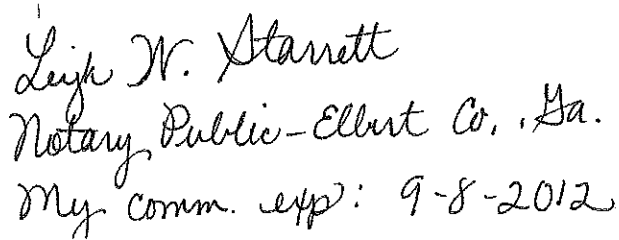 Leigh W. Starrett
Notary Public-Elbert Co., Ga.
My comm. exp: 9-8-2012